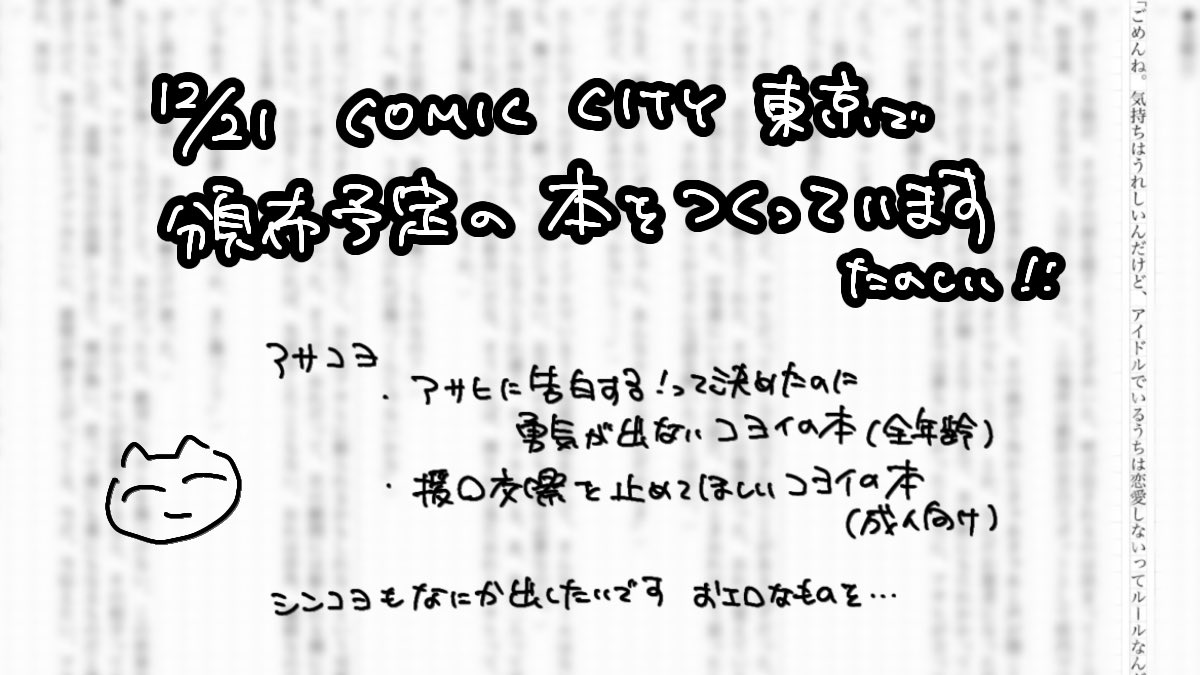 12/21 COMIC CITY 東京で
頒布予定の本をつくっています
たのしい!!
アサコヨ
・アサヒに告白する!って決めたのに
勇気が出ないコヨイの本(全年齢)
・援〇交際を止めてほしいコヨイの本
(成人向け)
シンコヨもなにか出したいです おエロなものを…
「ごめんね。気持ちはうれしいんだけど、アイドルでいるうちは恋愛しないってルールなんだ